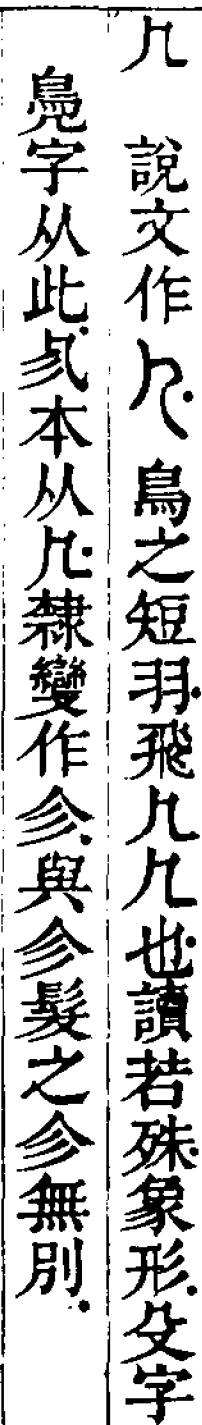 𠘧　說文作𠘧鳥之短羽飛𠘧𠘧也讀若殊象形殳字
鳧字从此㐱本从𠘧隸變作㐱與㐱髮之㐱無別